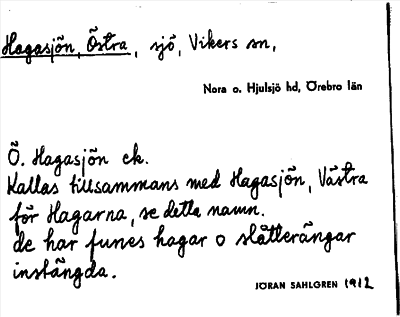 Hagasjön, Östra, sjö, Vikers sn,
Nora o. Hjulsjö hd, Örebro län
Ö. Hagasjön ek.
Kallas tillsammans med Hagasjön, Västra
för Hagarna, se detta namn.
de har funes hagar o slåtterängar
instängda.
JÖRAN SAHLGREN 1912